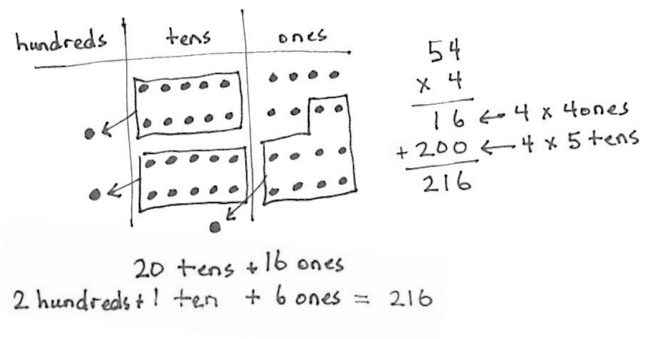 hundreds tens ones
54
x 4
16 ← 4 x 4ones
+ 200 ← 4 x 5 tens
216
20 tens + 16 ones
2 hundreds + 1 ten + 6 ones = 216